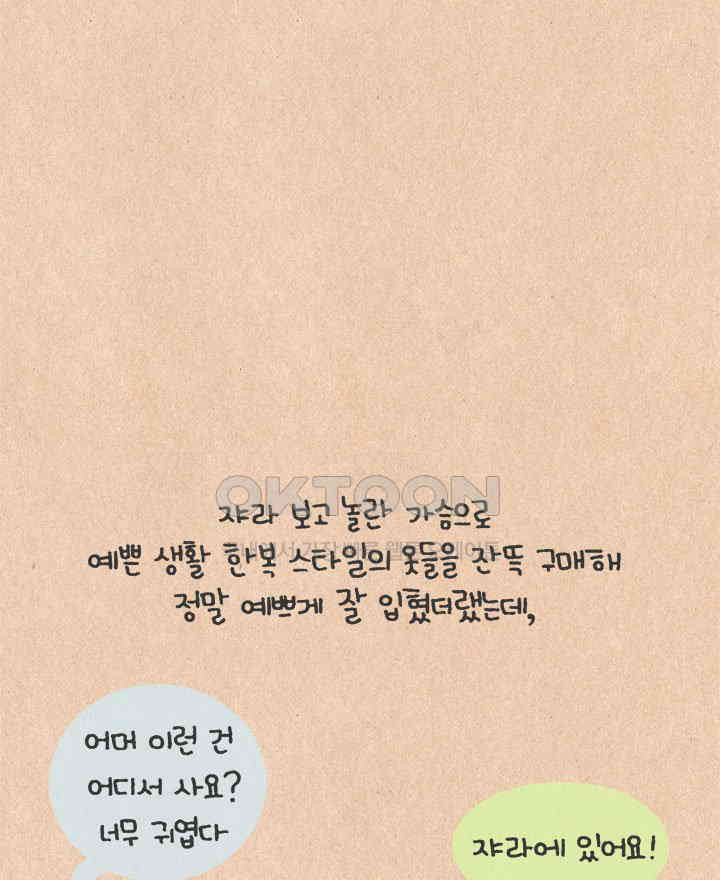 OKTOON
쟈라 보고 놀란 가슴으로
예쁜 생활 한복 스타일의 옷들을 잔뜩 구매해
정말 예쁘게 잘 입혔더랬는데,
어머 이런 건
어디서 사요?
너무 귀엽다
쟈라에 있어요!